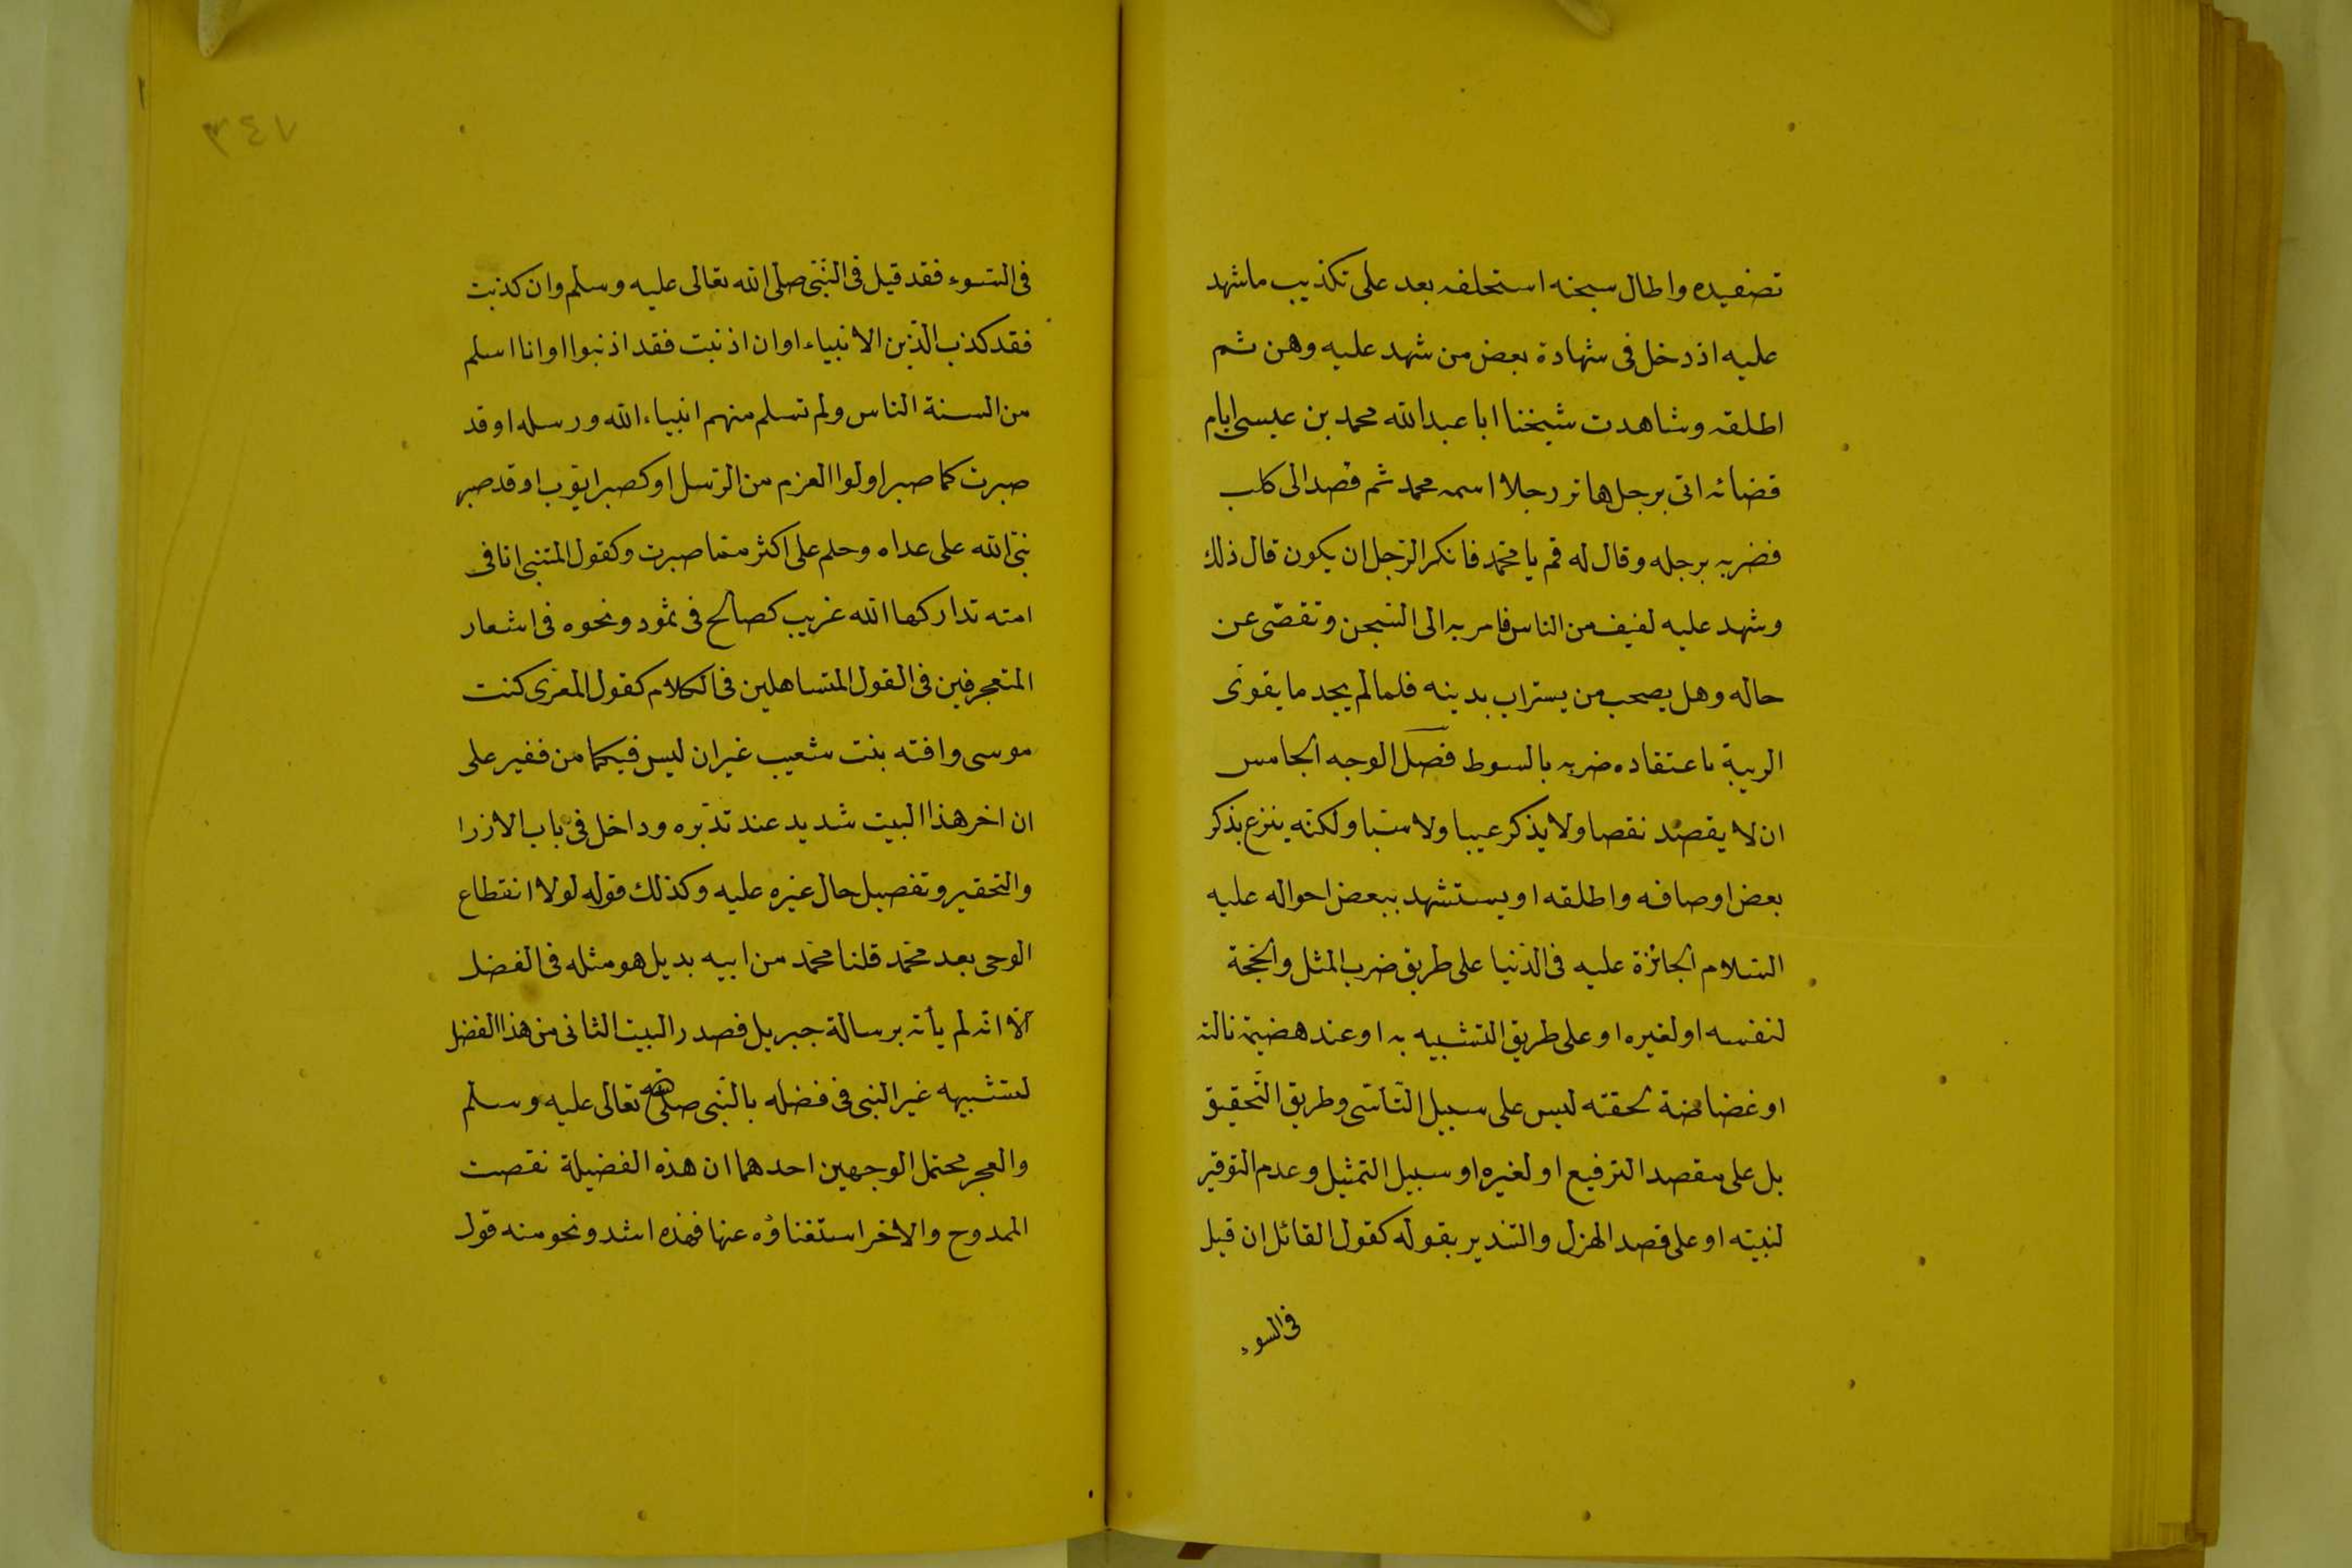 تصفيده واطال سجنه استحلفه بعد على تكذيب ما شهد
عليه اذ دخل فى شهادة بعض من شهد عليه وهن ثم
اطلقه وشاهدت شيخنا ابا عبدالله محمد بن عيسى ايام
قضائه اتى برجل هاتر رجلا اسمه محمد ثم قصد الى كلب
فضربه برجله وقال له قم يا محمّد فانكر الرّجل ان يكون قال ذلك
وشهد عليه لفيف من الناس فامر به الى السّجن وتقصّى عن
حاله وهل يصحب من يستراب بدينه فلما لم يجد ما يقوى
الريبة باعتقاده ضربه بالسوط فصل الوجه الخامس
ان لا يقصد نقصا ولا يذكر عيبا ولا سبّا ولكنّه ينزع بذكر
بعض اوصافه واطلقه او يستشهد ببعض احواله عليه
السّلام الجائزة عليه فى الدّنيا على طريق ضرب المثل والحجّة
لنفسه او لغيره او على طريق التشبيه به او عند هضيمة نالته
او غضاضة لحقته ليس على سبيل التّأسّى وطريق التّحقيق
بل على مقصد الترفيع او لغيره او سبيل التمثيل وعدم التوقير
لنبيّه او على قصد الهزل والتندير بقوله كقول القائل ان قيل
فى السوء
٧٤٣
فى السّوء فقد قيل فى النّبّى صلى الله تعالى عليه وسلّم وان كذبت
فقد كذب الّذين الانبياء او ان اذنبت فقد اذنبوا او انا اسلم
من السنة الناس ولم تسلم منهم انبياء الله ورسله او قد
صبرت كما صبر اولوا العزم من الرّسل او كصبر ايّوب او قد صبر
نبىّ الله على عداه وحلم على اكثر ممّا صبرت وكقول المتنبى انا فى
امته تداركها الله غريب كصالح فى ثمود ونحوه فى اشعار
المتعجرفين فى القول المتساهلين فى الكلام كقول المعرّى كنت
موسى وافته بنت شعيب غير ان ليس فيكما من فقير على
ان اخر هذا البيت شديد عند تدبّره وداخل فى باب الازرا
والتحقير وتفصيل حال غيره عليه وكذلك قوله لولا انقطاع
الوحى بعد محمّد قلنا محمّد من ابيه بديل هو مثله فى الفضل
الّا انّه لم يأته برسالة جبريل فصدر البيت الثانى من هذا الفضل
لتشبيهه غير النبى فى فضله بالنّبى صلى الله تعالى عليه وسلم
والعجر محتمل الوجهين احدهما ان هذه الفضيلة نقصت
الممدوح والاخر استغناؤه عنها فهذه اشد ونحو منه قول